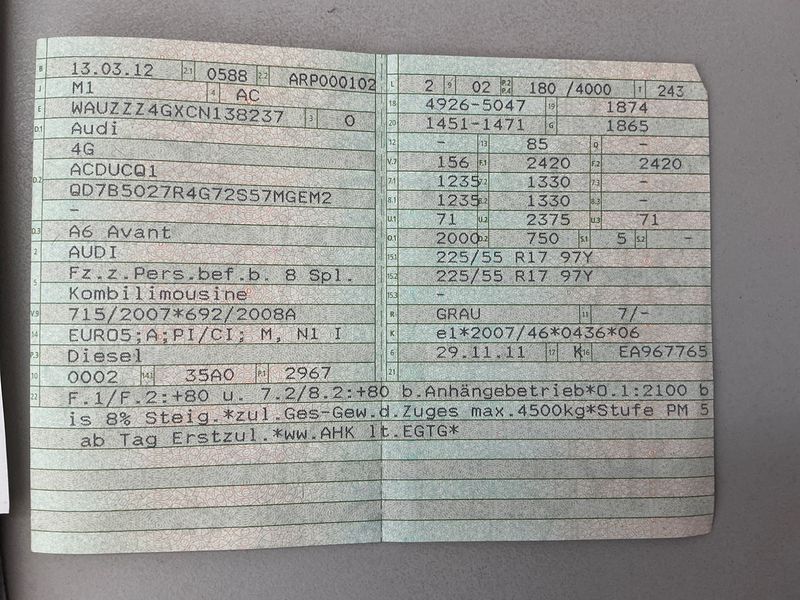 B 13.03.12 2.1 0588 2.2 ARP000102
J M1 4 AC
E WAUZZZ4GXCN138237 3 0
D.1 Audi
4G
D.2 ACDUCQ1
QD7B5027R4G72S57MGEM2
-
D.3 A6 Avant
2 AUDI
5 Fz.z.Pers.bef.b. 8 Spl.
Kombilimousine
V.9 715/2007*692/2008A
14 EURO5;A;PI/CI; M, N1 I
P.3 Diesel
10 0002 14.1 35A0 P.1 2967
L 2 9 02 P.2 P.4 180 /4000 T 243
18 4926-5047 19 1874
20 1451-1471 G 1865
12 - 13 85 Q -
V.7 156 F.1 2420 F.2 2420
7.1 1235 7.2 1330 7.3 -
8.1 1235 8.2 1330 8.3 -
U.1 71 U.2 2375 U.3 71
O.1 2000 O.2 750 S.1 5 S.2 -
15.1 225/55 R17 97Y
15.2 225/55 R17 97Y
15.3 -
R GRAU 11 7/-
K e1*2007/46*0436*06
6 29.11.11 17 K 16 EA967765
21
22 F.1/F.2:+80 u. 7.2/8.2:+80 b.Anhängebetrieb*O.1:2100 b
is 8% Steig.*zul.Ges-Gew.d.Zuges max.4500kg*Stufe PM 5
ab Tag Erstzul.*ww.AHK lt.EGTG*